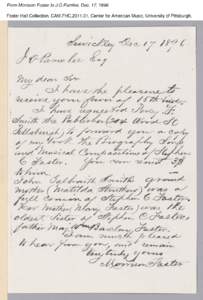 From Morrison Foster to J.G. Pumilee, Dec. 17, 1896
Foster Hall Collection, CAM.FHC.2011.01, Center for American Music, University of Pittsburgh.
Sewickley Dec 17 1896
Esq
My dear Sir
I have the pleasure to
receive your favor of 15th inst.
I have requested Percy F.
Smith the Publisher
Pittsburgh, to forward you a copy
of my book. The Biography Songs
and Musical Compositions of Stephen
C Foster. You can remit
him.
John Galbraith Smith's grand
mother (Matilda
full cousin of Stephen C Foster
Her Mother Mary Foster, was the
oldest sister of Stephen C Foster's
father Wm Barclay Foster.
I am much pleased
to hear from you, and remain
Very truly yours
Morrison Foster